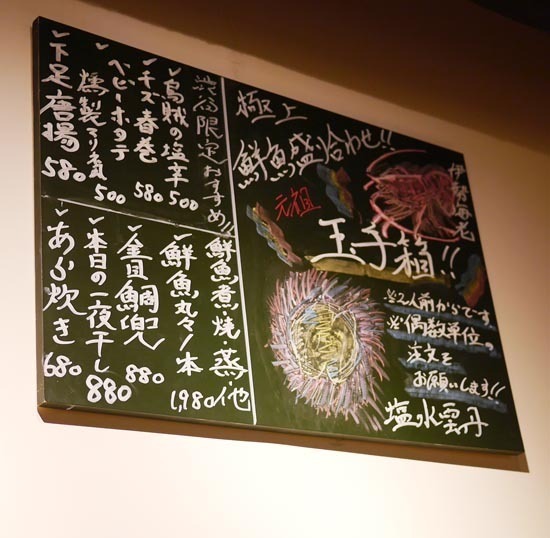 極上
鮮魚盛り合わせ!!
伊勢海老
元祖
玉手箱!!
※2人前からです
※偶数単位の
注文を
お願いします!!
塩水雲丹
渋谷限定おすすめ!!
烏賊の塩辛 500
チーズ春巻 580
ベビーホタテ
燻製マリネ 500
下足唐揚 580
鮮魚煮・焼・蒸・他
鮮魚丸々1本 1,980
金目鯛兜 880
本日の一夜干し 880
あら炊き 680